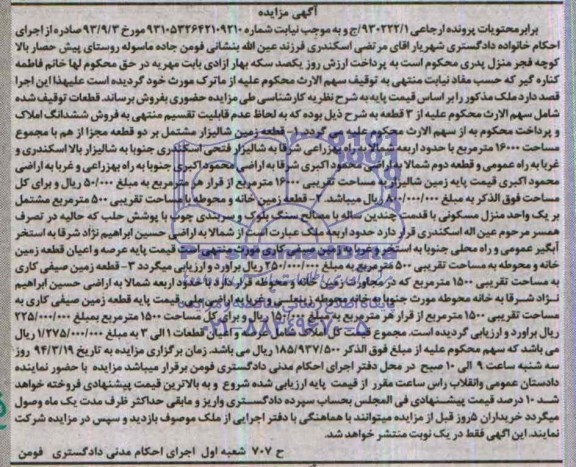 آگهی مزایده
برابر محتویات پرونده ارجاعی ۹۳۰۲۲۲/۱/ج و به موجب نیابت شماره ۹۳۱۰۵۳۲۶۴۲۱۰۹۲۱۰ مورخ ۹۳/۹/۳ صادره از اجرای
احکام خانواده دادگستری شهریار آقای مرتضی اسکندری فرزند عین الله بنشانی فومن جاده ماسوله روستای پیش حصار بالا
کوچه فجر منزل پدری محکوم است به پرداخت ارزش روز یکصد سکه بهار آزادی بابت مهریه در حق محکوم لها خانم فاطمه
کناره گیر که حسب مفاد نیابت منتهی به توقیف سهم الارث محکوم علیه از ماترک مورث خود گردیده است علیهذا این اجرا
قصد دارد ملک مذکور را بر اساس قیمت پایه به شرح نظریه کارشناسی طی مزایده حضوری بفروش برساند. قطعات توقیف شده
شامل سهم الارث محکوم علیه از ۳ قطعه به شرح ذیل بوده که به لحاظ عدم قابلیت تقسیم منتهی به فروش ششدانگ املاک
و پرداخت محکوم به از سهم الارث محکوم علیه می گردد. ۱- قطعه زمین شالیزار مشتمل بر دو قطعه مجزا از هم با مجموع
مساحت ۱۶۰۰۰ مترمربع با حدود اربعه شمالا به راه به زراعی شرقا به شالیزار فتحی اسکندری جنوبا به شالیزار بالا اسکندری و
غربا به راه عمومی و قطعه دوم شمالا به اراضی محمود اکبری شرقا به اراضی محمود اکبری جنوبا به راه بهزراعی و غربا به اراضی
محمود اکبری قیمت پایه زمین شالیزار به مساحت تقریبی ۱۶۰۰۰ مترمربع از قرار هر مترمربع به مبلغ ۵۰/۰۰۰ ریال و برای کل
مساحت فوق الذکر به مبلغ ۸۰۰/۰۰۰/۰۰۰ ریال میباشد. ۲- قطعه زمین خانه و محوطه با مساحت تقریبی ۵۰۰ مترمربع مشتمل
بر یک واحد منزل مسکونی با قدمت چندین ساله با مصالح سنگ بلوک و سربندی چوب با پوشش حلب که حالیه در تصرف
همسر مرحوم عین اله اسکندری قرار دارد حدود اربعه ملک عبارت است از شمالا به اراضی حسین ابراهیم نژاد شرقا به استخر
آبگیر عمومی و راه محلی جنوبا به استخر و غربا به زمین صیفی کاری مورث منتهی است قیمت پایه عرصه و اعیان قطعه زمین
خانه و محوطه به مساحت تقریبی ۵۰۰ مترمربع به مبلغ ۲۵۰/۰۰۰/۰۰۰ ریال براورد و ارزیابی میگردد ۳- قطعه زمین صیفی کاری
به مساحت تقریبی ۱۵۰۰ مترمربع که در مجاورت زمین خانه و محوطه قرار دارد با حدود اربعه شمالا به اراضی حسین ابراهیم
نژاد شرقا به خانه محوطه مورث جنوبا به خانه محوطه و غربا به اراضی قیمت پایه قطعه زمین صیفی کاری به
مساحت تقریبی ۱۵۰۰ مترمربع از قرار هر مترمربع به مبلغ ۱۵۰/۰۰۰ ریال و برای کل مساحت ۱۵۰۰ مترمربع بمبلغ ۲۲۵/۰۰۰/۰۰۰
ریال براورد و ارزیابی گردیده است. مجموع قیمت کل املاک شامل عرصه و اعیان قطعات ۱ الی ۳ به مبلغ ۱/۲۷۵/۰۰۰/۰۰۰ ریال
می باشد که سهم محکوم علیه از مبلغ فوق الذکر ۱۸۵/۹۳۷/۵۰۰ ریال می باشد. زمان برگزاری مزایده به تاریخ ۹۴/۳/۱۹ روز
سه شنبه ساعت ۹ الی ۱۰ صبح در محل دفتر اجرای احکام مدنی دادگستری فومن برقرار میباشد مزایده با حضور نماینده
دادستان عمومی وانقلاب راس ساعت مقرر از قیمت پایه ارزیابی شده شروع و به بالاترین قیمت پیشنهادی فروخته خواهد
شد ۱۰ درصد قیمت پیشنهادی فی المجلس بحساب سپرده دادگستری واریز و مابقی حداکثر ظرف مدت یک ماه وصول
میگردد خریداران ۵روز قبل از مزایده میتوانند با هماهنگی با دفتر اجرایی از ملک موصوف بازدید و سپس در مزایده شرکت
نمایند. این آگهی فقط در یک نوبت منتشر خواهد شد.
ح ۷۰۷ شعبه اول اجرای احکام مدنی دادگستری فومن